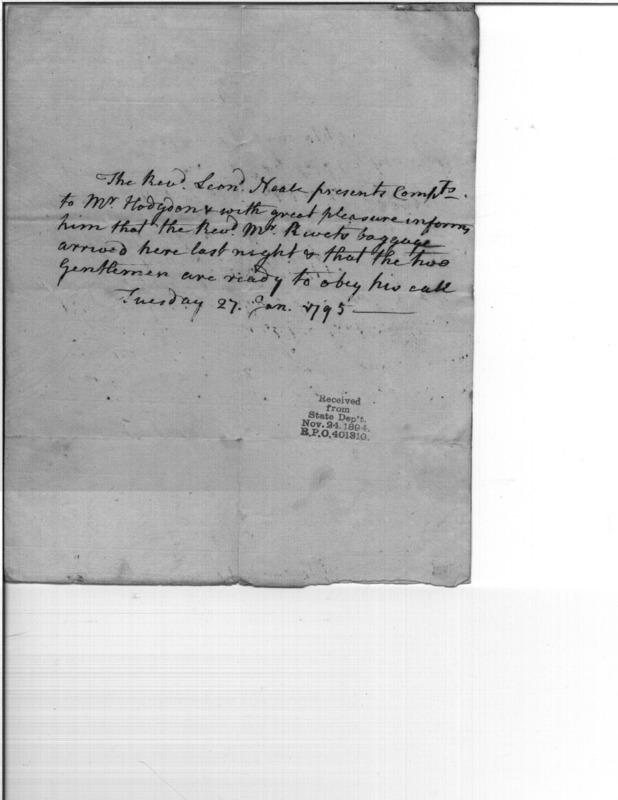 The Revd. Leond. Neale presents Compts.
to Mr Hodgdon & with great pleasure informs
him that the Revd. Mr. Rivets baggage
arrived here last night & that the two
Gentlemen are ready to obey his call
Tuesday 27. Jan. 1795 —
Received
from
State Dep't.
Nov. 24. 1894.
R.P.O. 401310.